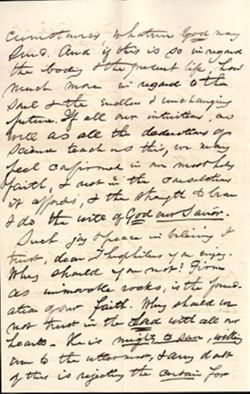 circumstances whatever God may
send. And if this is so in regard
the body & the present life, how
much more in regard to the
soul & the endless & unchanging
future. If all our intuitions, as
well as all the deductions of
Science teach us this, we may
feel confirmed in our most holy
faith, & rest in the consolations
it affords, & the strength to bear
& do the will of God our Savior.
Such joy & peace in believing I
trust, dear Theophilus you enjoy.
Why should you not? Firm
as immovable rocks, is the found-
ation of our faith. Why should we
not trust in the Lord with all our
hearts - He is mighty to save, willing
to the uttermost, & any doubt
of this is rejecting the certain for